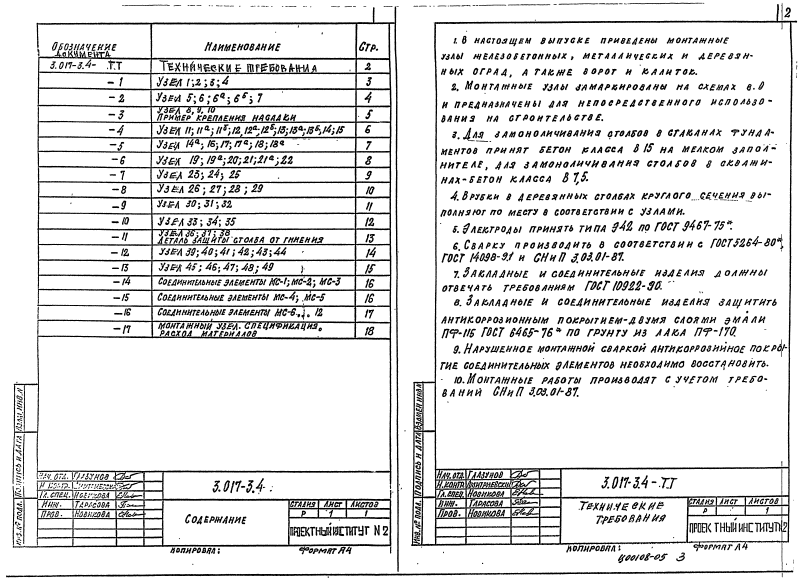 Обозначение документа
Наименование
Стр.
3.017-3.4- .ТТ Технические требования 2
-1 Узел 1; 2; 3; 4 3
-2 Узел 5; 6; 6а; 6б; 7 4
-3 Узел 8, 9, 10 Пример крепления насадки 5
-4 Узел 11; 11а; 11б; 12, 12а; 12б; 13; 13а; 13б, 14; 15 6
-5 Узел 14а, 16; 17; 17а; 18; 18а 7
-6 Узел 19; 19а; 20; 21; 21а; 22 8
-7 Узел 23; 24; 25 9
-8 Узел 26; 27; 28; 29 10
-9 Узел 30; 31; 32 11
-10 Узел 33; 34; 35 12
-11 Узел 36; 37; 38 Деталь защиты столба от гниения 13
-12 Узел 39; 40; 41; 42; 43; 44 14
-13 Узел 45; 46; 47; 48; 49 15
-14 Соединительные элементы МС-1; МС-2; МС-3 16
-15 Соединительные элементы МС-4; МС-5 16
-16 Соединительные элементы МС-6... 12 17
-17 Монтажный узел. Спецификация. Расход материалов 18
Нач. отд. Глазунов
Н. контр.
Гл. спец. Новикова
Инж. Тарасова
Пров. Новикова
3.017-3.4
Содержание
Стадия Лист Листов
Р 1 1
Проектный институт N2
Копировал: Формат А4
Инв. № подл. Подпись и дата Взам. инв. №
2
1. В настоящем выпуске приведены монтажные
узлы железобетонных, металлических и деревян-
ных оград, а также ворот и калиток.
2. Монтажные узлы замаркированы на схемах в.0
и предназначены для непосредственного использо-
вания на строительстве.
3. Для замоноличивания столбов в стаканах фунда-
ментов принят бетон класса В 15 на мелком запол-
нителе, для замоноличивания столбов в скважи-
нах-бетон класса В 7,5.
4. Врубки в деревянных столбах круглого сечения вы-
полняют по месту в соответствии с узлами.
5. Электроды принять типа Э42 по ГОСТ 9467-75*.
6. Сварку производить в соответствии с ГОСТ 5264-80*,
ГОСТ 14098-91 и СНиП 3.03.01-87.
7. Закладные и соединительные изделия должны
отвечать требованиям ГОСТ 10922-90.
8. Закладные и соединительные изделия защитить
антикоррозионным покрытием-двумя слоями эмали
ПФ-115 ГОСТ 6465-76* по грунту из лака ПФ-170.
9. Нарушенное монтажной сваркой антикоррозийное покры-
тие соединительных элементов необходимо восстановить.
10. Монтажные работы производят с учетом требо-
ваний СНиП 3.03.01-87.
Нач. отд. Глазунов
Н. контр.
Гл. спец. Новикова
Инж. Тарасова
Пров. Новикова
3.017-3.4-.ТТ
Технические требования
Стадия Лист Листов
Р 1
Проектный институт 2
Копировал: Формат А4
Ц00108-05 3
Инв. № подл. Подпись и дата Взамен инв. №